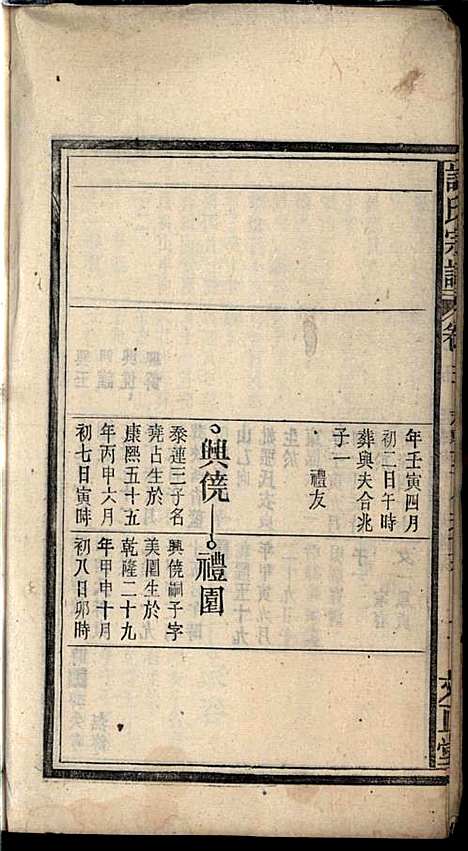 氏宗譜
卷
年壬寅四月
初二日午時
葬與夫合兆
子一
禮友
興僥
泰蓮三子名
堯占生於
康熙五十五
年丙申六月
初七日寅時
禮園
興僥嗣子字
美園生於
乾隆二十九
年甲申十月
初八日卯時